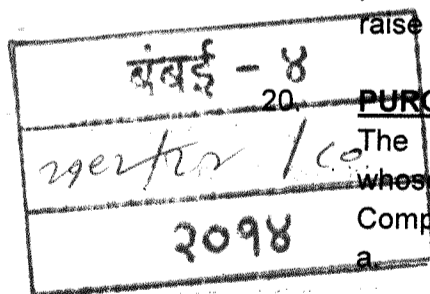 raise
बंबई - ४
20. PURC
The
whose
Comp
२०१४
a.